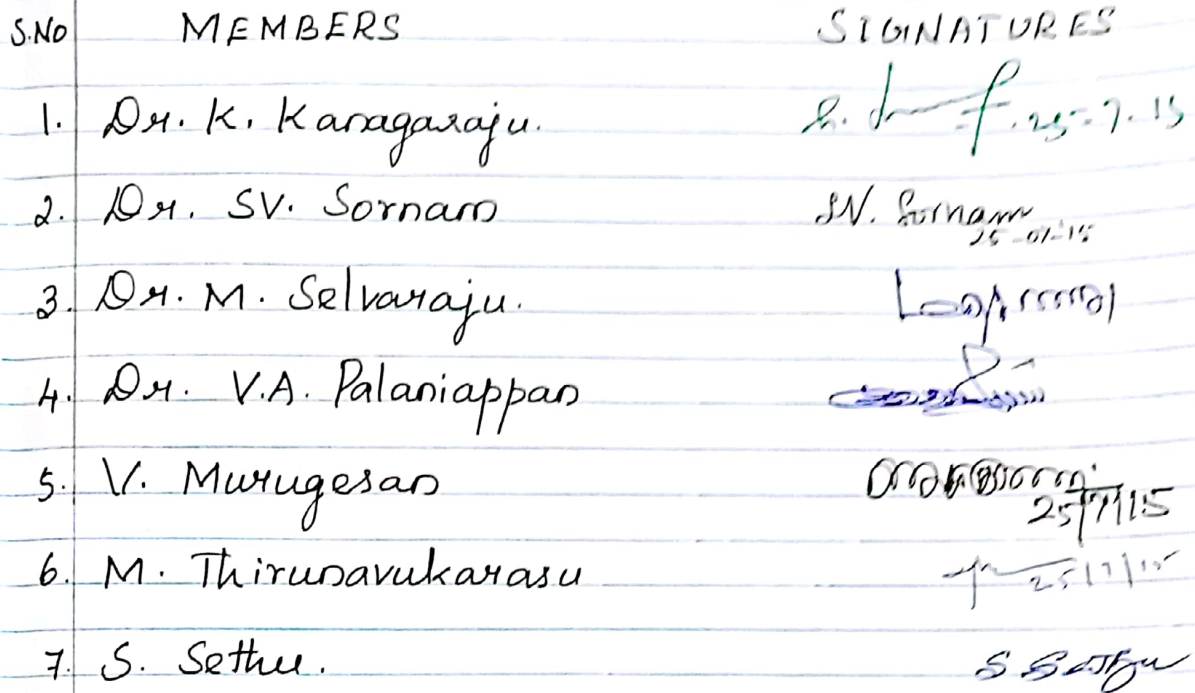 S.NO MEMBERS SIGNATURES
1. Dr. K. Kanagaraju. 25-7-15
2. Dr. SV. Sornam SV. Sornam
25-07-15
3. Dr. M. Selvaraju.
4. Dr. V.A. Palaniappan
5. V. Murugesan
25/7/15
6. M. Thirunavukarasu 25/7/15
7. S. Sethu.